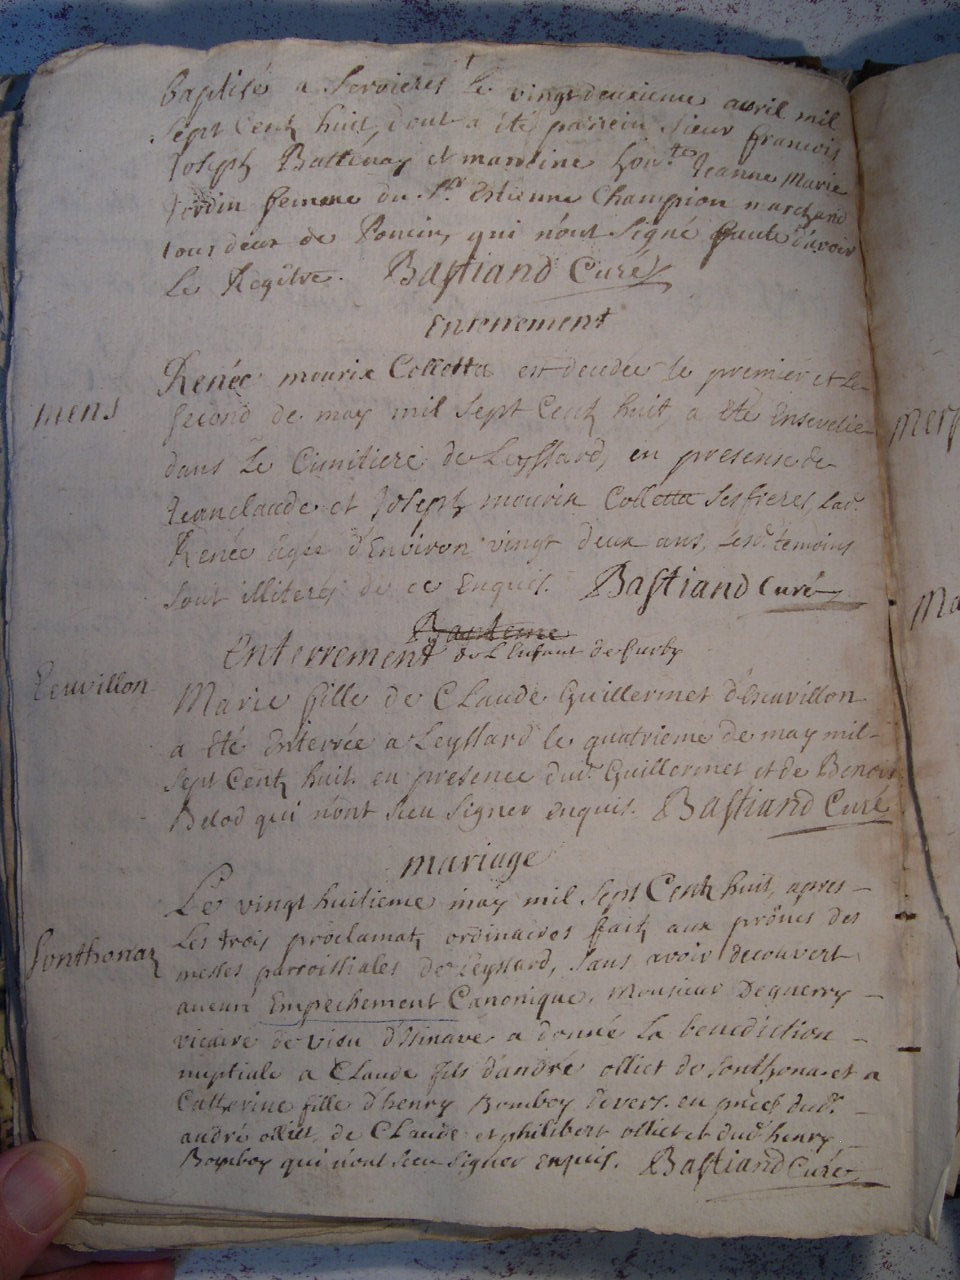 Baptisé a Serrieres Le vingtdeuxieme avril mil
sept Centz huit, dont a été parrein sieur francois
Joseph Battenay et marreine hon.te Jeanne Marie
Jordin femme du S.r Estienne Champion marchand
tous deux de Poncin, qui n'ont Signé faute d'avoir
Le Regître. Bastiand Curé
Enterrement
mens
Renée mourix Colletta est decedée le premier et Le
second de may mil sept Centz huit, a été Ensevelie
dans Le Cimitiere de Leyssard, en presense de
Jeanclaude et Joseph mourix Colletta ses freres, Lad.
Renée agée d'Environ vingt deux ans, Lesd. témoins
sont illiterés de ce Enquis. Bastiand Curé
Bapteme
Enterrement de L'Enfant de
Leuvillon
Marie fille de CLaude Guillermet d'Esuvillon
a été Enterrée a Leyssard le quatrieme de may mil
sept Centz huit en presence dud. Guillermet et de Benoit
Belod qui n'ont sceu signer enquis. Bastiand Curé
mariage
Le vingt huitieme may mil sept Centz huit, apres
Les trois proclamatz ordinaires faitz aux prônes des
Sonthonaz
messes parroissiales de Leyssard, sans avoir decouvert
aucun Empechement Canonique. Monsieur Deguerry
vicaire de vieu d'Isinave a donné La benediction
nuptiale a CLaude fils d'andré olliet de sonthona et a
Catherine fille d'henry Bomboy devers. en dud.
andré olliet, de CLaude et philibert olliet et dud. henry
Bomboy qui n'ont sceu signer enquis. Bastiand Curé